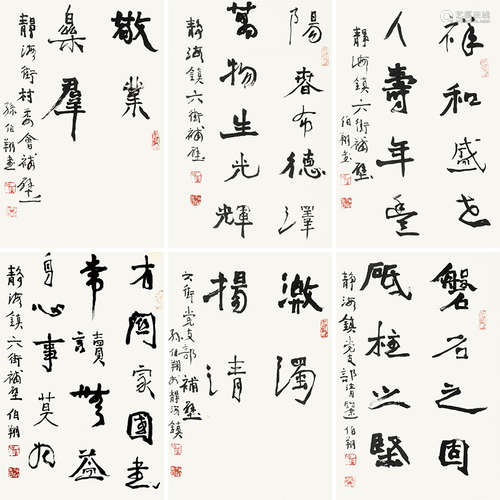 敬業
樂羣
静海街村委會補壁
孫伯翔書
陽春布德澤
萬物生光輝
静海鎮六街補壁
祥和盛世
人壽年豐
静海鎮六街補壁
伯翔書
有關家國書
常讀無益
身心事莫為
静海鎮六街補壁伯翔
激濁
揚清
六街党支部補壁
孫伯翔於静海鎮
磐石之固
砥柱之堅
静海鎮党支部清鑒伯翔